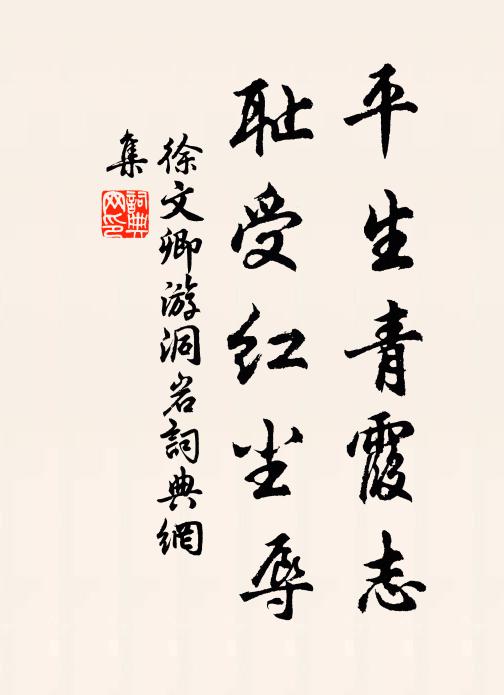 平生青霞志
耻受红尘辱
徐文卿游洞岩詞典網
集
詞典網印